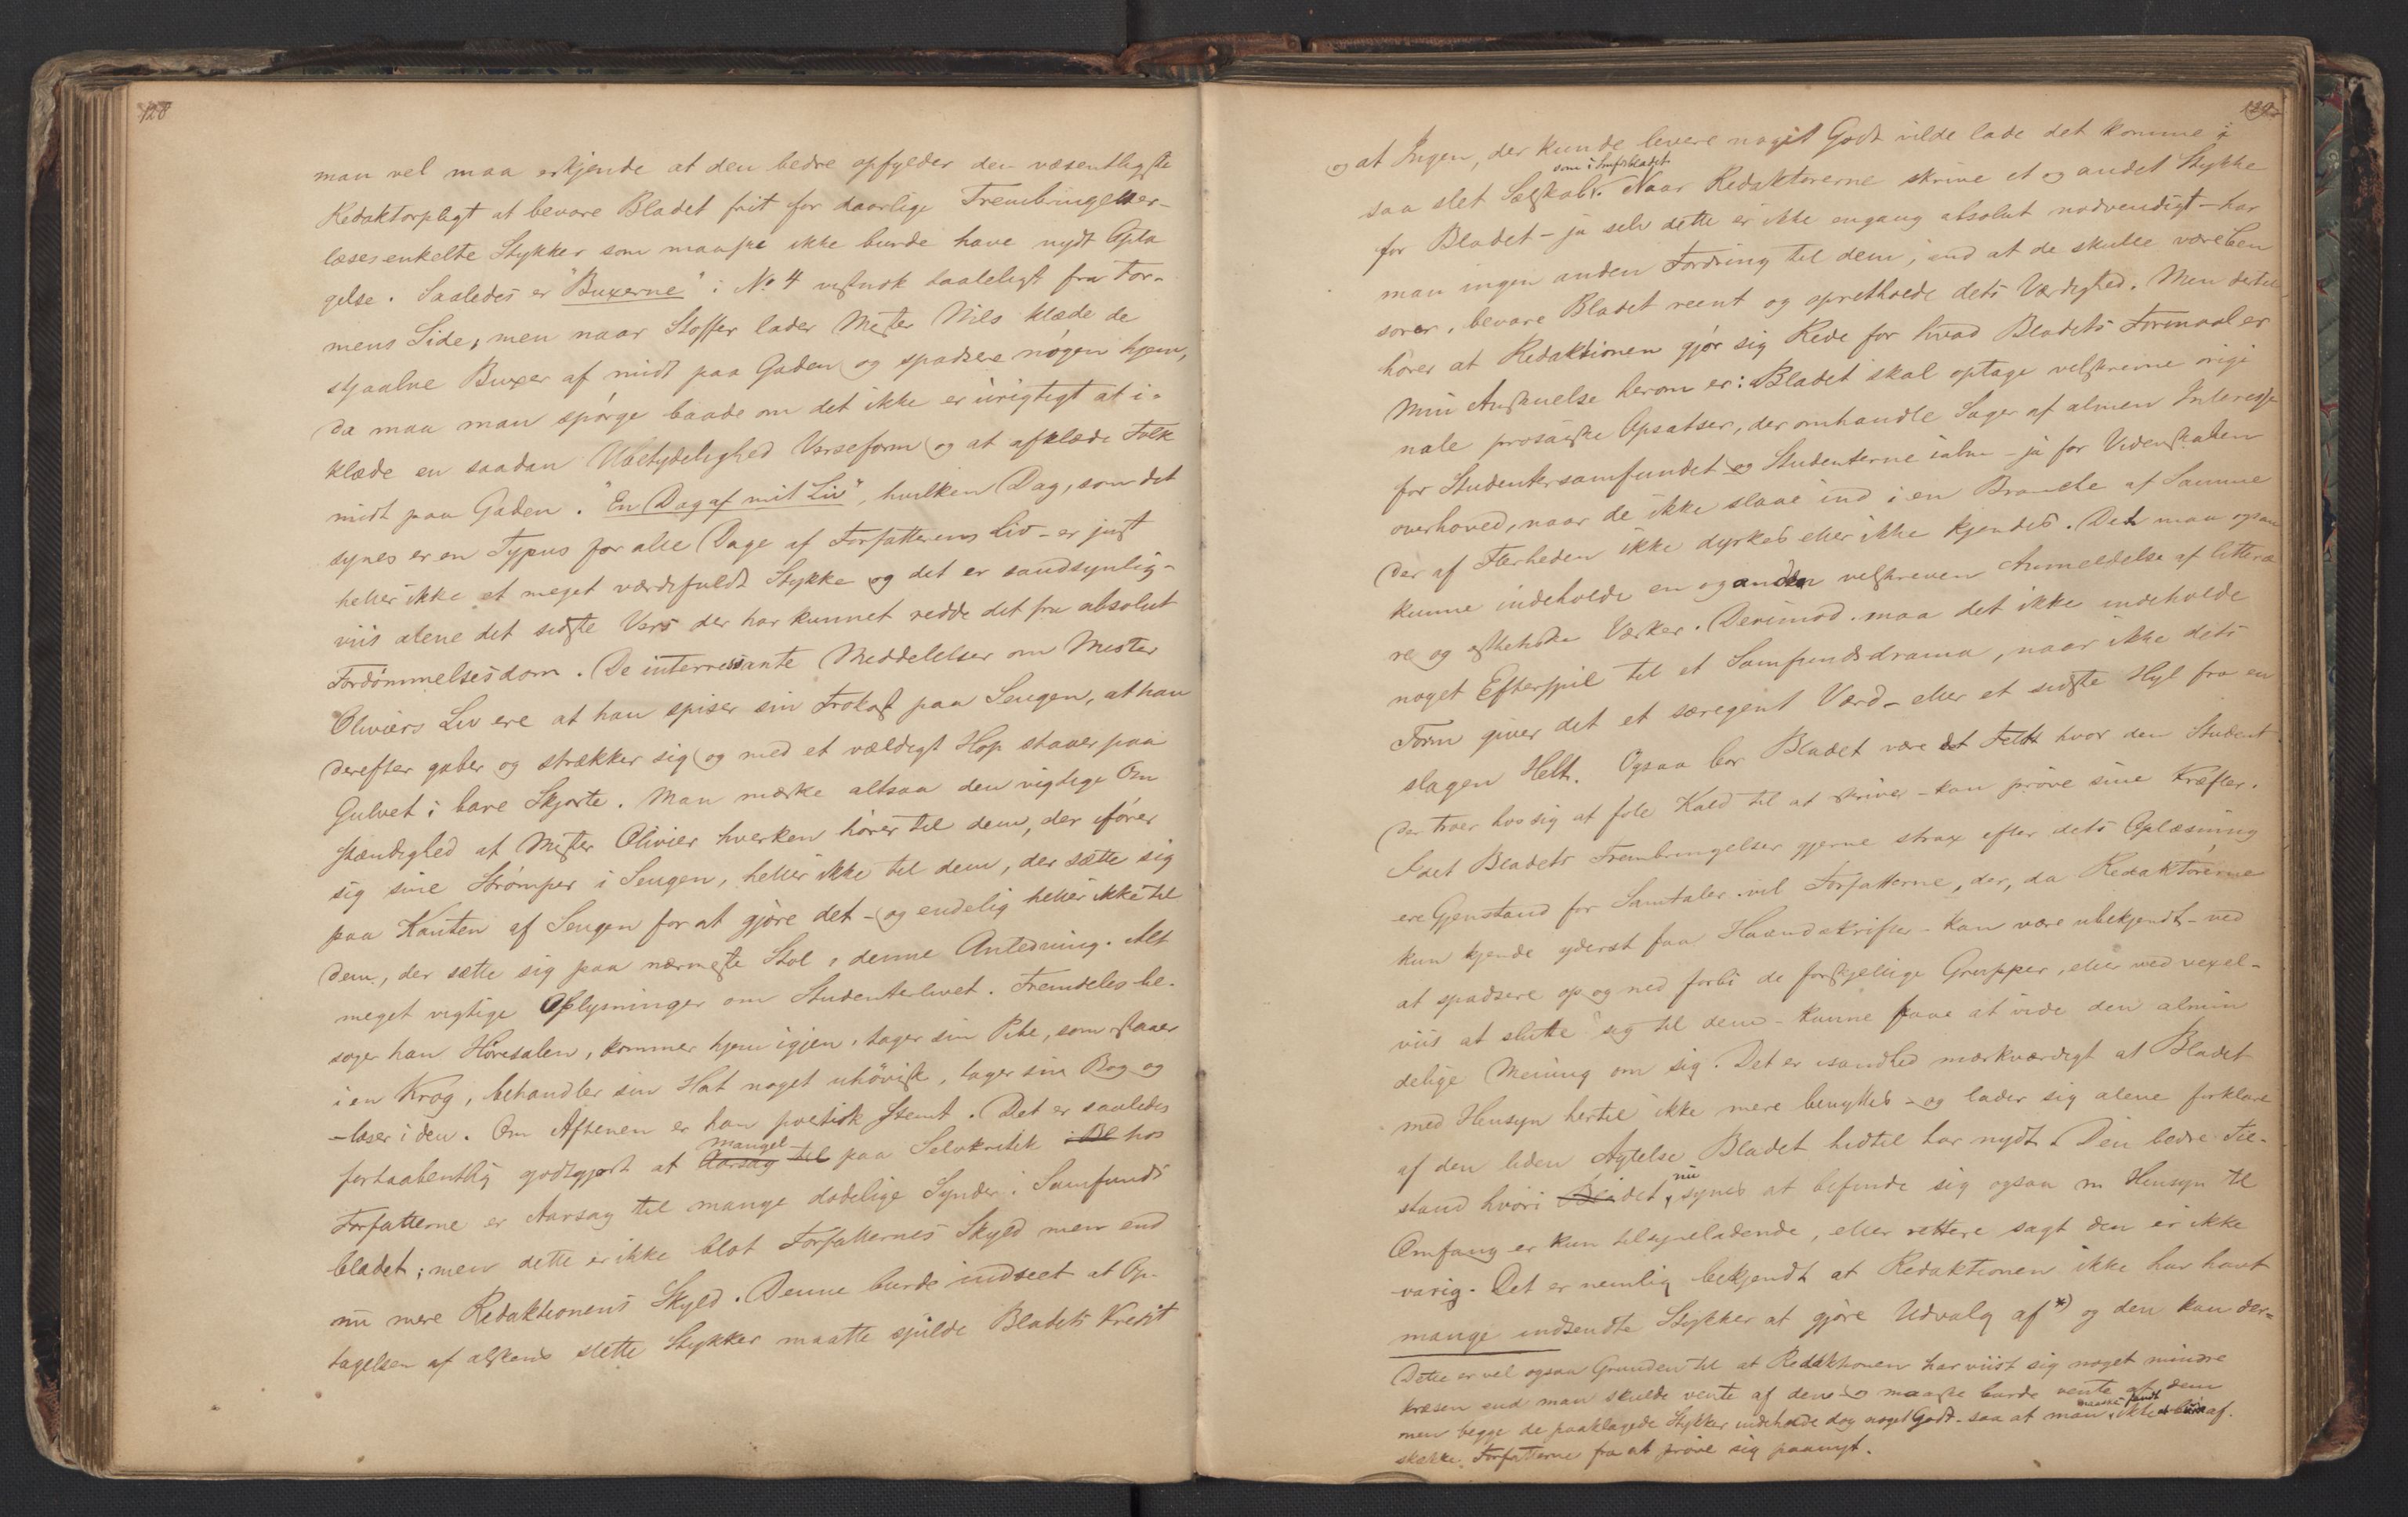 128
man vel maa erkjende at den bedre opfylder den væsentligste
Redaktorpligt at bevare Bladet frit for daarlige Frembringelser –
læses enkelte Stykker som maaske ikke burde have nydt Opta
gelse. Saaledes er "Buxerne" i No 4 vistnok taaleligt fra For-
mens Side, men naar Stoffer lader Mester Nils klæde de
stjaalne Buxer af midt paa Gaden og spadsere nögen hjem,
da maa man spörge baade om det ikke er urigtigt at i-
klæde en saadan Ubetydelighed Verseform og at afklæde Folk
midt paa Gaden. "En Dag af mit Liv", hvilken Dag, som det
synes er en Typus for alle Dage af Forfatterens Liv – er just
heller ikke et meget værdifuldt Stykke og det er sandsynlig-
viis alene det sidste Vers der har kunnet redde det fra absolut
Fordömmelsesdom. De interressante Meddelelser om Mester
Oliviers Liv ere at han spiser sin Frokost paa Sengen, at han
derefter gaber og strækker sig og med et vældigt Hop staaer paa
Gulvet i bare Skjorte. Man mærke altsaa den vigtige Om
stændighed at Mester Olivier hverken hörer til dem, der iförer
sig sine Strömper i Sengen, heller ikke til dem, der sætte sig
paa Kanten af Sengen for at gjöre det – og endelig heller ikke til
dem, der sætte sig paa nærmeste Stol i denne Anledning. Alt
meget vigtige Oplysninger om Studenterlivet. Fremdeles be-
söger han Höresalen, kommer hjem igjen, tager sin Pibe, som staaer
i en Krog, behandler sin Hat noget uhövisk, tager sin Bog og
– læser i den. Om Aftenen er han poetisk stemt. Det er saaledes
forhaabentlig godtgjort at Aarsag til mangel paa Selvkritik i Bl hos
Forfatterne er Aarsag til mange dödelige Synder i Samfunds
bladet; men dette er ikke blot Forfatternes Skyld men end
nu mere Redaktionens Skyld. Denne burde indseet at Op-
tagelsen af alskens slette Stykker maatte spilde Bladets Kredit
129
og at Ingen, der kunde levere noget Godt vilde lade det komme i
saa slet Selskab som i Smfsbladet. Naar Redaktorerne skrive et og andet Stykke
for Bladet – ja selv dette er ikke engang absolut nodvendigt – har
man ingen anden Fordring til dem, end at de skulle være Cen
sorer, bevare Bladet reent og opretholde dets Værdighed. Men dertil
hörer at Redaktionen gjör sig Rede for hvad Bladets Formaal er
Min Anskuelse herom er: Bladet skal optage velskrevne origi
nale prosaiske Opsatser, der omhandle Sager af almen Interesse
for Studentersamfundet og Studenterne ialm – ja for Videnskaben
overhoved, naar de ikke slaae ind i en Branche af Samme
der af Flerheden ikke dyrkes eller ikke kjendes. Det maa ogsaa
kunne indeholde en og anden velskreven Anmeldelse af litteræ
re og æsthetiske Værker. Derimod maa det ikke indeholde
noget Efterspil til et Samfundsdrama, naar ikke dets
Form giver det et særegent Værd – eller et sidste Hyl fra en
slagen Helt. Ogsaa bor Bladet være det Feltt hvor den Student
der troer hos sig at föle Kald til at skrive – kan pröve sine Kræfter.
Idet Bladets Frembringelser gjerne strax efter dets Oplæsning
ere Gjenstand for Samtaler vil Forfatterne, der, da Redaktörerne
kun kjende yderst faa Haandskrifter – kan være ubekjendt – ved
at spadsere op og ned forbi de forskjellige Grupper, eller ved vexel-
viis at slutte sig til dem – kunne faae at vide den almin
delige Mening om sig. Det er isandhed mærkværdigt at Bladet
med Hensyn hertil ikke mere benyttes – og lader sig alene forklare
af den liden Agtelse Bladet hidtil har nydt. Den bedre Til-
stand hvori det nu synes at befinde sig ogsaa m Hensyn til
Omfang er kun tilsyneladende, eller rettere sagt den er ikke
varig. Det er nemlig bekjendt at Redaktionen ikke har havt
mange indsendte Stykker at gjöre Udvalg af *) og den kan der-
Dette er vel ogsaa Grunden til at Redaktionen har viist sig noget mindre
kræsen end man skulde vente af den og maaske burde vente af dem
men begge de paaklagede Stykker indeholde dog noget Godt – saa at man maaske ikke burde af-
skække Forfatterne fra at pröve sig paanyt.